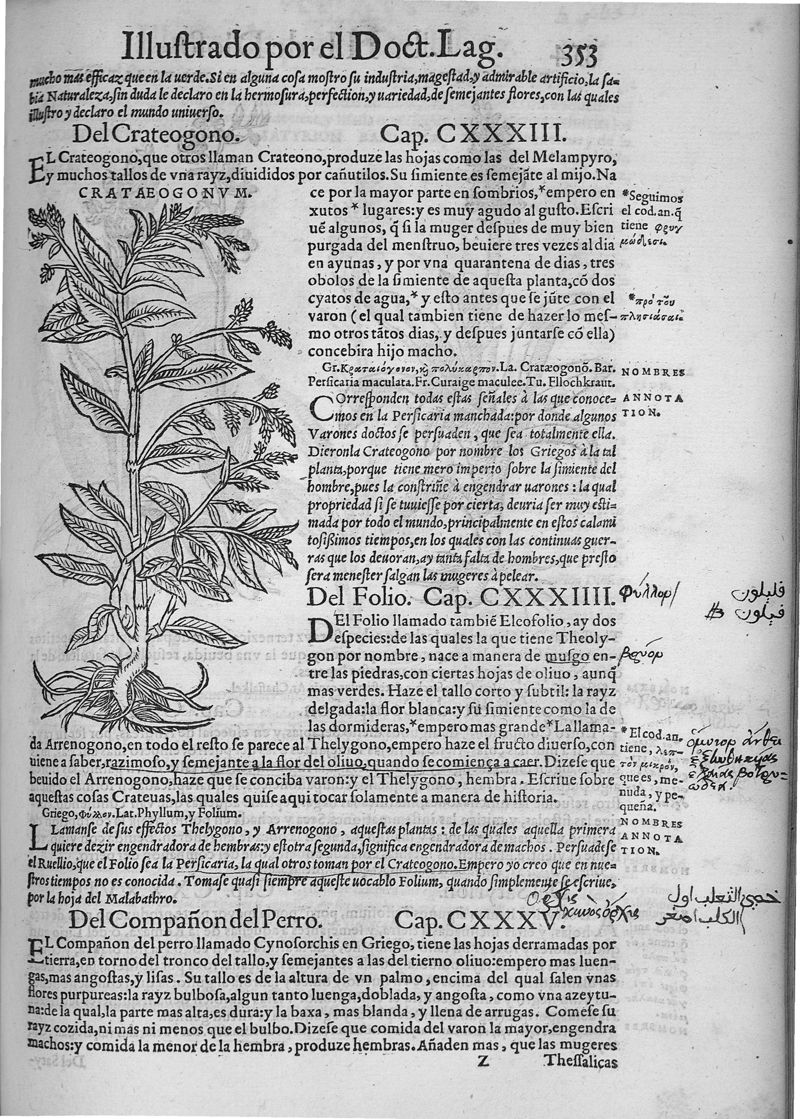 Illuſtrado por el Doct. Lag. 353
mucho mas efficaz que en la uerde. Si en alguna coſa moſtro ſu induſtria, mageſtad, y admirable artificio, la ſa=
bia Naturaleza, ſin duda le declaro en la hermoſura, perfection, y uariedad, de ſemejantes flores, con las quales
illuſtro y declaro el mundo uniuerſo.
Del Crateogono. Cap. CXXXIII.
EL Crateogono, que otros llaman Crateono, produze las hojas como las del Melampyro,
y muchos tallos de vna rayz, diuididos por cañutilos. Su ſimiente es ſemejāte al mijo. Na
CRATAEOGONVM.
ce por la mayor parte en ſombrios, *empero en
xutos * lugares: y es muy agudo al guſto. Eſcri
uē algunos, q̄ ſi la muger deſpues de muy bien
purgada del menſtruo, beuiere tres vezes al dia
en ayunas, y por vna quarantena de dias, tres
obolos de la ſimiente de aqueſta planta, cō dos
cyatos de agua, * y eſto antes que ſe jūte con el
varon (el qual tambien tiene de hazer lo meſ-
mo otros tātos dias, y deſpues juntarſe cō ella)
concebira hijo macho.
*Seguimos
el cod. an. q̄
tiene
*πρὸ τοῦ
πλησιάσαι.
Gr. Κραταιόγονον, ϗ πολύκαρπον. La. Cratæogonō. Bar.
Perſicaria maculata. Fr. Curaige maculee. Tu. Fllochkraut.
NOMBRES
COrreſponden todas eſtas ſeñales à las que conoce=
mos en la Perſicaria manchada: por donde algunos
Varones doctos ſe perſuaden, que ſea totalmente ella.
Dieronla Crateogono por nombre los Griegos à la tal
planta, porque tiene mero imperio ſobre la ſimiente del
hombre, pues la conſtriñe à engendrar uarones: la qual
propriedad ſi ſe tuuieſſe por cierta, deuria ſer muy eſti=
mada por todo el mundo, principalmente en eſtos calami
toſißimos tiempos, en los quales con las continuas guer-
ras que los deuoran, ay tanta falta de hombres, que preſto
ſera meneſter ſalgan las mugeres à pelear.
ANNOTA
TION.
Del Folio. Cap. CXXXIIII. φύλλον
قليلون
فيلون
DEl Folio llamado tambiē Elæofolio, ay dos
eſpecies: de las quales la que tiene Theoly-
gon por nombre, nace a manera de muſgo en-
tre las piedras, con ciertas hojas de oliuo, aunq̄
mas verdes. Haze el tallo corto y ſubtil: la rayz
delgada: la flor blanca: y ſu ſimiente como la de
las dormideras, *empero mas grande* La llama-
da Arrenogono, en todo el reſto ſe parece al Thelygono, empero haze el fructo diuerſo, con
uiene a ſaber, razimoſo, y ſemejante a la flor del oliuo, quando ſe comiença a caer. Dizeſe que
beuido el Arrenogono, haze que ſe conciba varon: y el Thelygono, hembra. Eſcriue ſobre
aqueſtas coſas Crateuas, las quales quiſe aqui tocar ſolamente a manera de hiſtoria.
βρύον
*El cod. an.
tiene,
que es, me-
nuda, y pe-
queña.
Griego, Φύλλον. Lat. Phyllum, y Folium.
NOMBRES
LLamanſe de sus effectos Thelygono, y Arrenogono, aqueſtas plantas: de las quales aquella primera
quiere dezir engendradora de hembras: y eſtotra ſegunda, ſignifica engendradora de machos. Perſuadeſe
el Ruellio, que el Folio ſea la Perſicaria, la qual otros toman por el Crateogono. Empero yo creo que en nue=
ſtros tiempos no es conocida. Tomaſe quaſi ſiempre aqueſte uocablo Folium, quando ſimplemente ſe eſcriue,
por la hoja del Malabathro.
ANNOTA
TION.
ὄρχις
κυνὸς ὄρχις
خصى الثعلب اول
الكلب اصغر
Del Compañon del Perro. Cap. CXXXV.
EL Compañon del perro llamado Cynoſorchis en Griego, tiene las hojas derramadas por
tierra, en torno del tronco del tallo, y ſemejantes a las del tierno oliuo: empero mas luen-
gas, mas angoſtas, y liſas. Su tallo es de la altura de vn palmo, encima del qual ſalen vnas
flores purpureas: la rayz bulboſa, algun tanto luenga, doblada, y angoſta, como vna azeytu-
na: de la qual, la parte mas alta, es dura: y la baxa, mas blanda, y llena de arrugas. Comeſe ſu
rayz cozida, ni mas ni menos que el bulbo. Dizeſe que comida del varon la mayor, engendra
machos: y comida la menor de la hembra, produze hembras. Añaden mas, que las mugeres
Z Theſſalicas